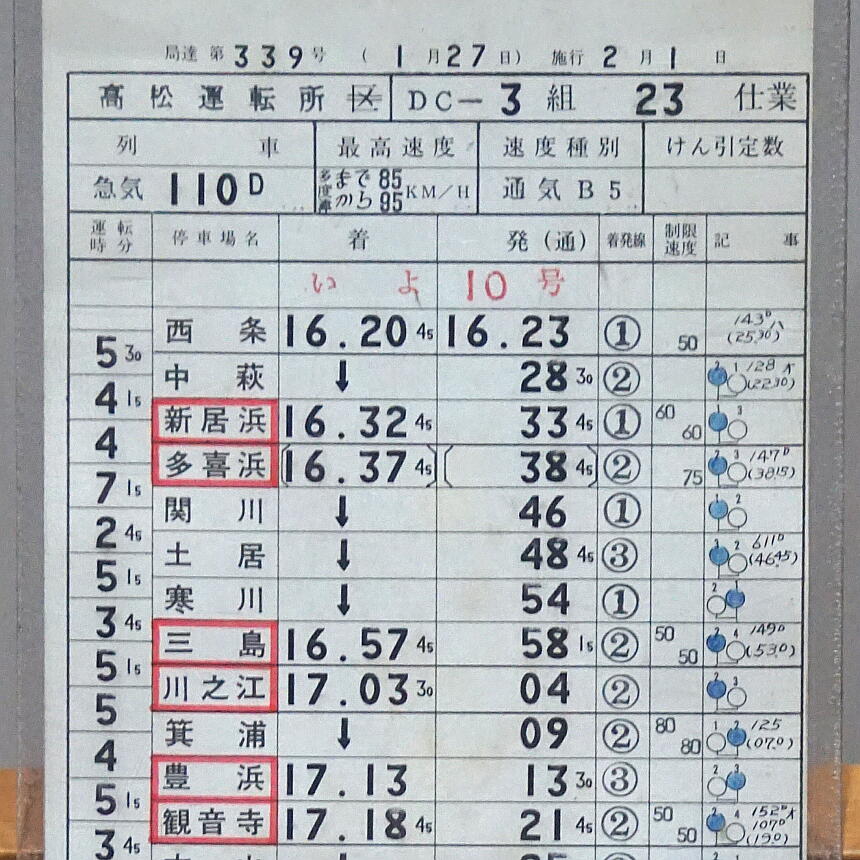 局達 第339号 (1月27日) 施行 2月1日
高松運転所区 DC-3組 23仕業
列車 最高速度 速度種別 けん引定数
急気 110D 多度津まで85 から95 KM/H 通気B5
運転時分 停車場名 着 発(通) 着発線 制限速度 記事
いよ 10号
西条 16.20 45 16.23 ① 50 143D ハ (25.30)
5 30
中萩 ↓ 28 30 ② 2 1 128 (22.30)
4 15
新居浜 16.32 45 33 45 ① 60 60 3
4
多喜浜 [16.37 45] [38 45] ② 75 2 3 147D (38.15)
7 15
関川 ↓ 46 ① 1 2
2 45
土居 ↓ 48 45 ③ 3 2 611D (46.45)
5 15
寒川 ↓ 54 ① 2 1
3 45
三島 16.57 45 58 15 ② 50 50 2 4 149D (53.0)
5 15
川之江 17.03 30 04 ② 2 3
5
箕浦 ↓ 09 ② 80 80 1 2 125 (07.0)
4
豊浜 17.13 13 30 ③ 2 3
5 15
観音寺 17.18 45 21 45 ② 50 50 2 4 152D 107D (19.0)
3 45